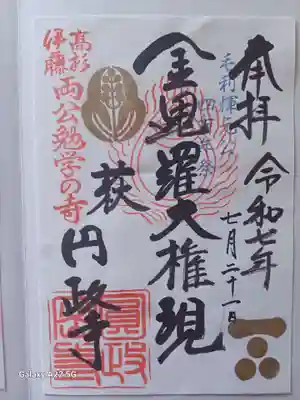 奉拝
令和七年
七月二十一日
毛利輝元公
四百年祭
金毘羅大権現
萩
円政寺
高杉
伊藤
両公勉学の寺
Galaxy 5G